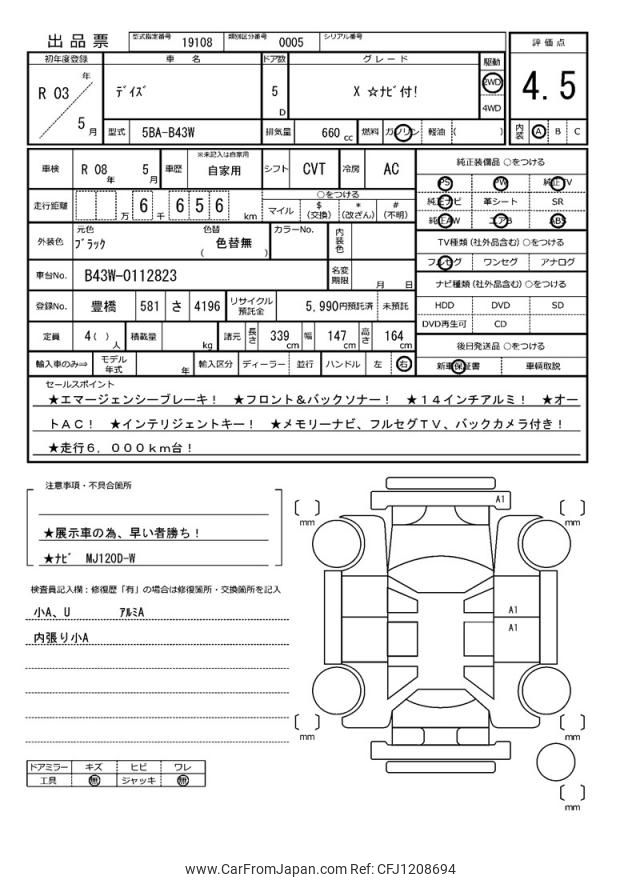 出品票 型式指定番号 19108 類別区分番号 0005 シリアル番号
初年度登録 車名 ドア数 グレード 駆動 評価点
R 03 年 5 月 ﾃﾞｲｽﾞ 5 D X ☆ﾅﾋﾞ付! 2WD 4WD 4.5
型式 5BA-B43W 排気量 660 cc 燃料 ガソリン 軽油 ( ) 内装 A B C
車検 R 08 年 5 月 車歴 ※未記入は自家用 自家用 シフト CVT 冷房 AC
走行距離 万 6 千 6 5 6 km ○をつける
マイル $ (交換) * (改ざん) # (不明)
外装色 元色 ﾌﾞﾗｯｸ 色替 ( 色替無 ) カラーNo. 内装色
車台No. B43W-0112823 名変期限 月 日
登録No. 豊橋 581 さ 4196 リサイクル預託金 5,990円預託済 未預託
定員 4( ) 人 積載量 kg 諸元 長さ 339 cm 幅 147 cm 高さ 164 cm
輸入車のみ⇒ モデル年式 年 輸入区分 ディーラー 並行 ハンドル 左 右
純正装備品 ○をつける
PS PW 純正TV
純正ナビ 革シート SR
純正AW エアB ABS
TV種類 (社外品含む) ○をつける
フルセグ ワンセグ アナログ
ナビ種類 (社外品含む) ○をつける
HDD DVD SD
DVD再生可 CD
後日発送品 ○をつける
新車保証書 車輌取説
セールスポイント
★エマージェンシーブレーキ！ ★フロント＆バックソナー！ ★１４インチアルミ！ ★オー
トＡＣ！ ★インテリジェントキー！ ★メモリーナビ、フルセグＴＶ、バックカメラ付き！
★走行６，０００ｋｍ台！
注意事項・不具合箇所
★展示車の為、早い者勝ち！
★ﾅﾋﾞ MJ120D-W
検査員記入欄：修復歴「有」の場合は修復箇所・交換箇所を記入
小A、U ｱﾙﾐA
内張り小A
ドアミラー キズ ヒビ ワレ
工具 無 ジャッキ 無
A1
mm
mm
A1
A1
mm
mm
mm
www.CarFromJapan.com Ref: CFJ1208694